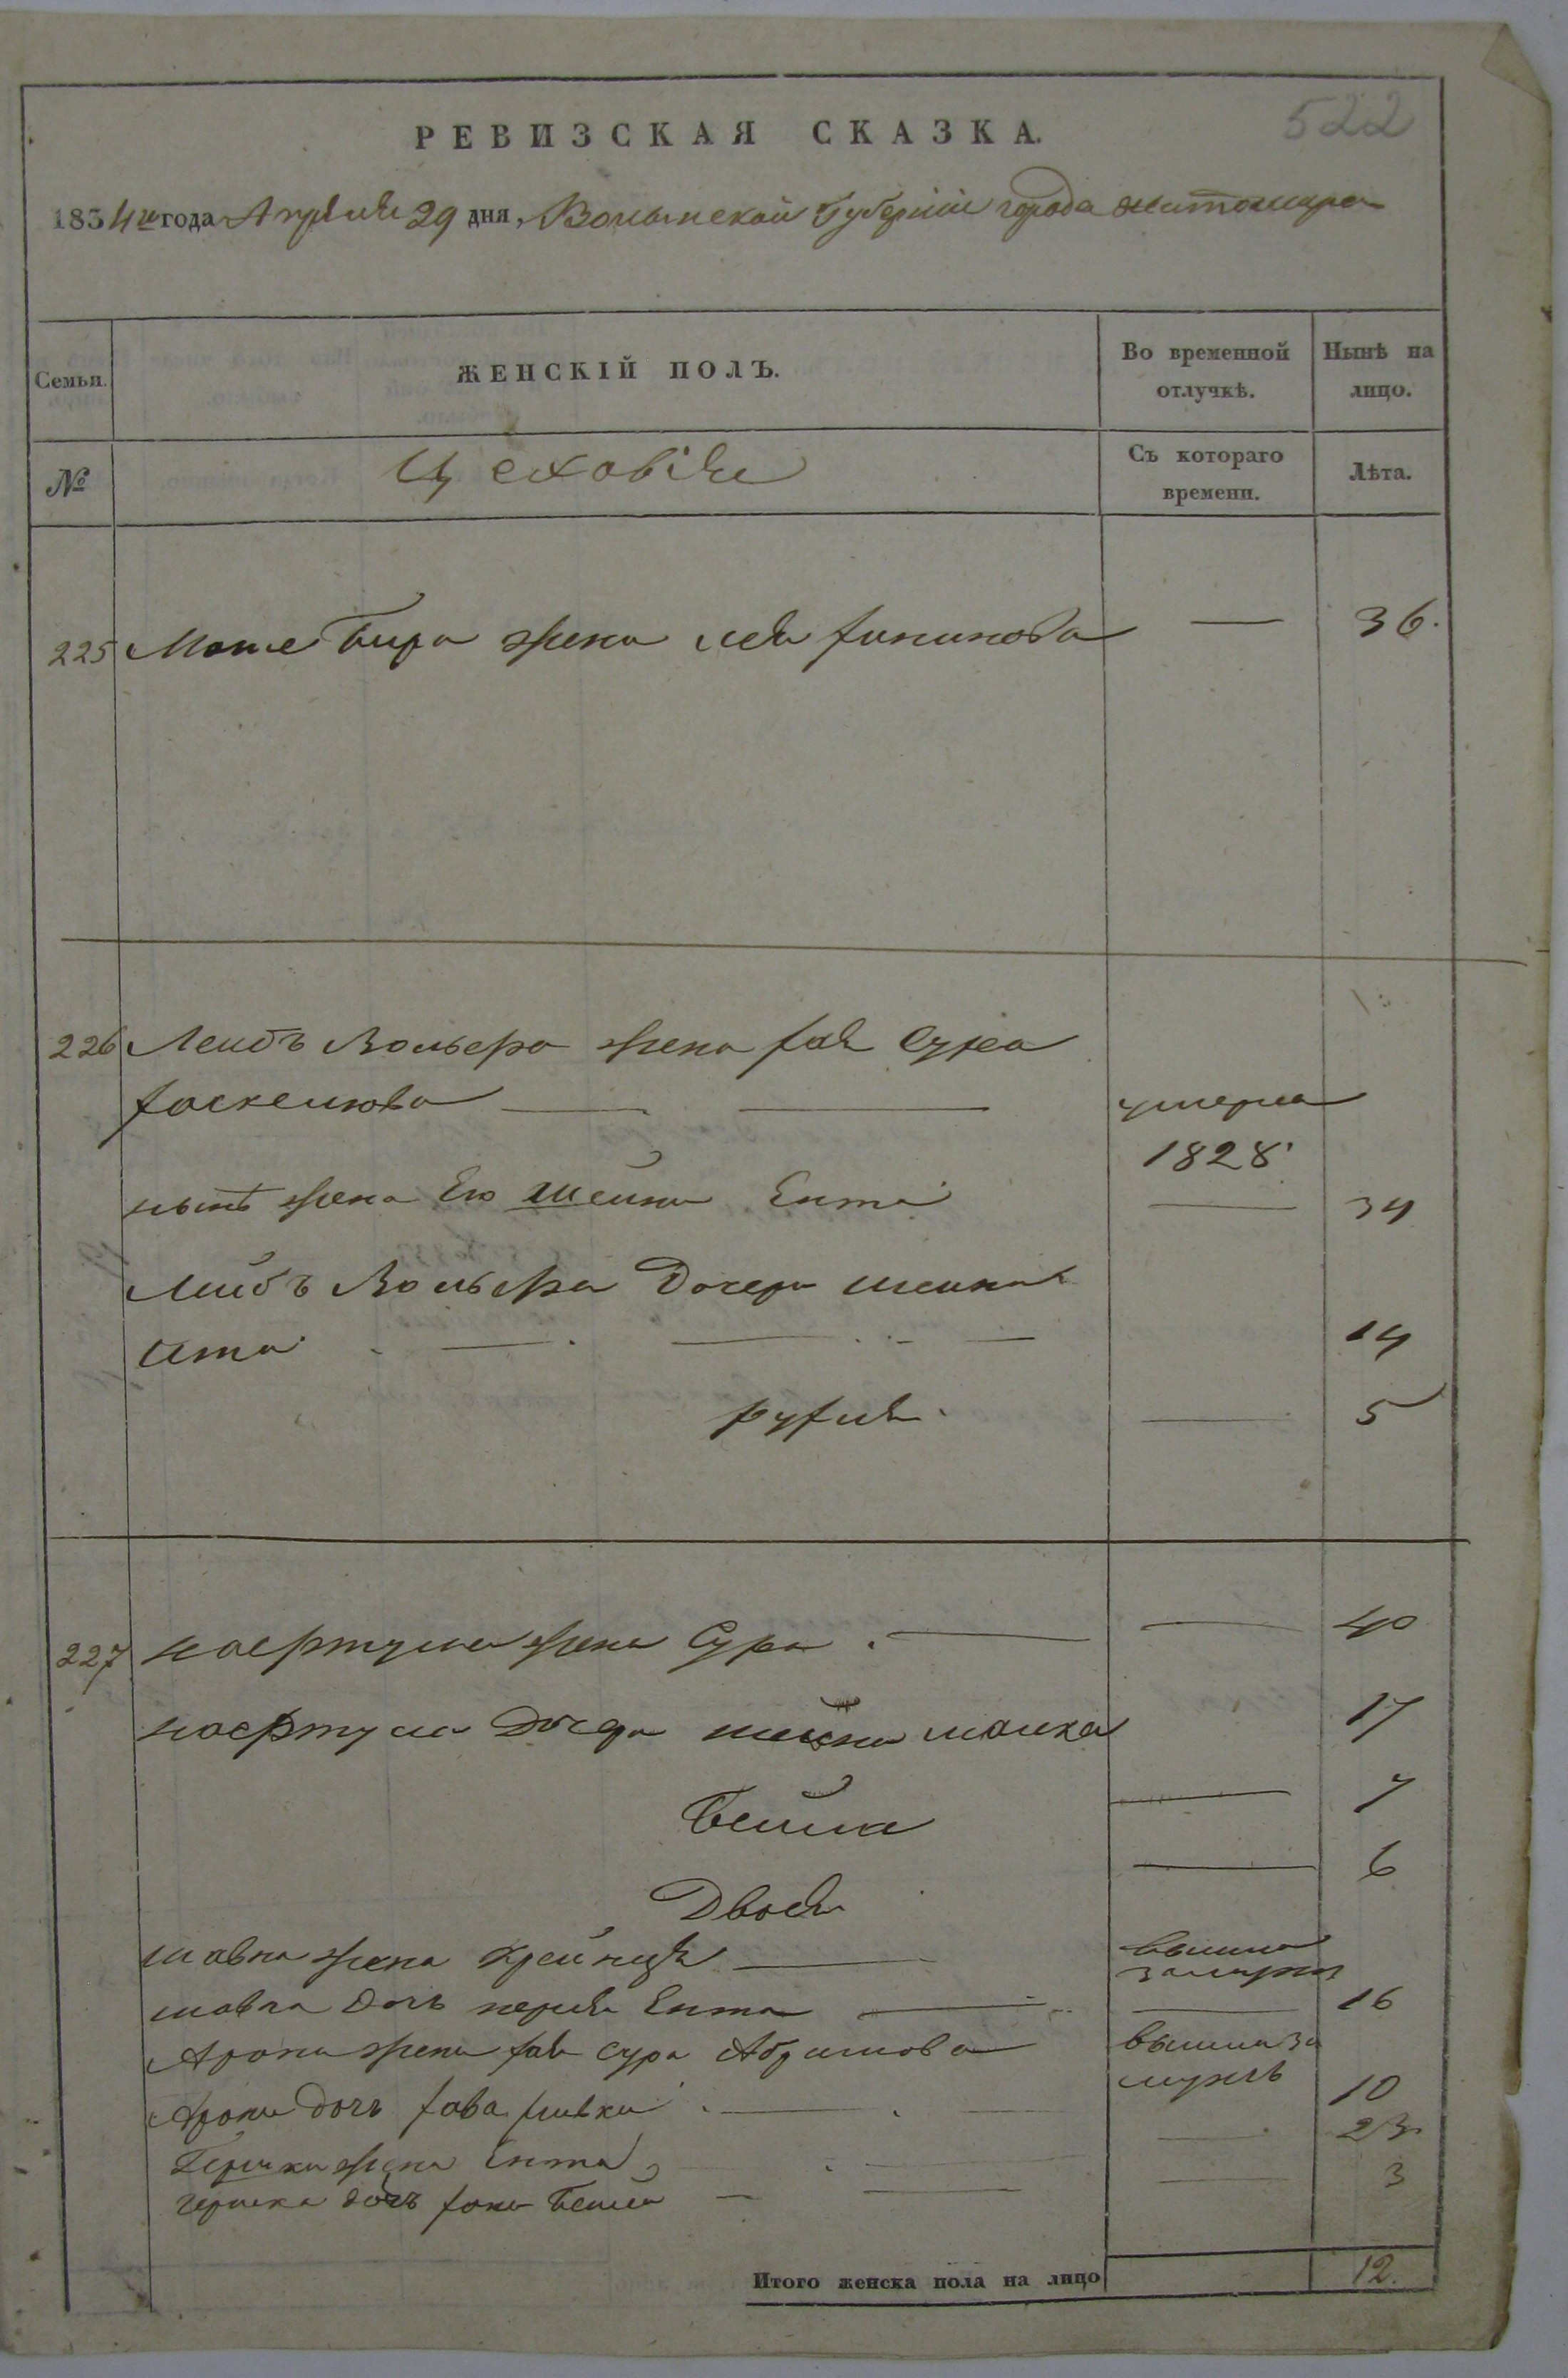 522
РЕВИЗСКАЯ СКАЗКА.
1834го года Апреля 29 дня, Волынской Губернии города Житомира
Семьи. ЖЕНСКІЙ ПОЛЪ. Во временной отлучкѣ. Нынѣ на лицо.
№ Цеховіе Съ котораго времени. Лѣта.
225 Мошъ Бира жена Лея — 36.
226 Лейбъ Вольфа жена Хая Сура
умерла
1828
нынѣ жена Его Шейна Ента — 34
Лейбъ Вольфа Дочери Шейна
Ита 14
Рухля — 5
227 жена Сура — 40
Дочери Малка 17
Бейла — 7
Двося — 6
Шавла жена Крейнця вышла замужъ
Шавла дочь Перля Ента — 16
Арона жена Хая Сура Абрамова вышла за мужъ
Арона дочь Хава Ривка 10
Гершка жена Ента — 23
Гершка дочь Хана Бейла — 3
Итого женска пола на лицо 12.